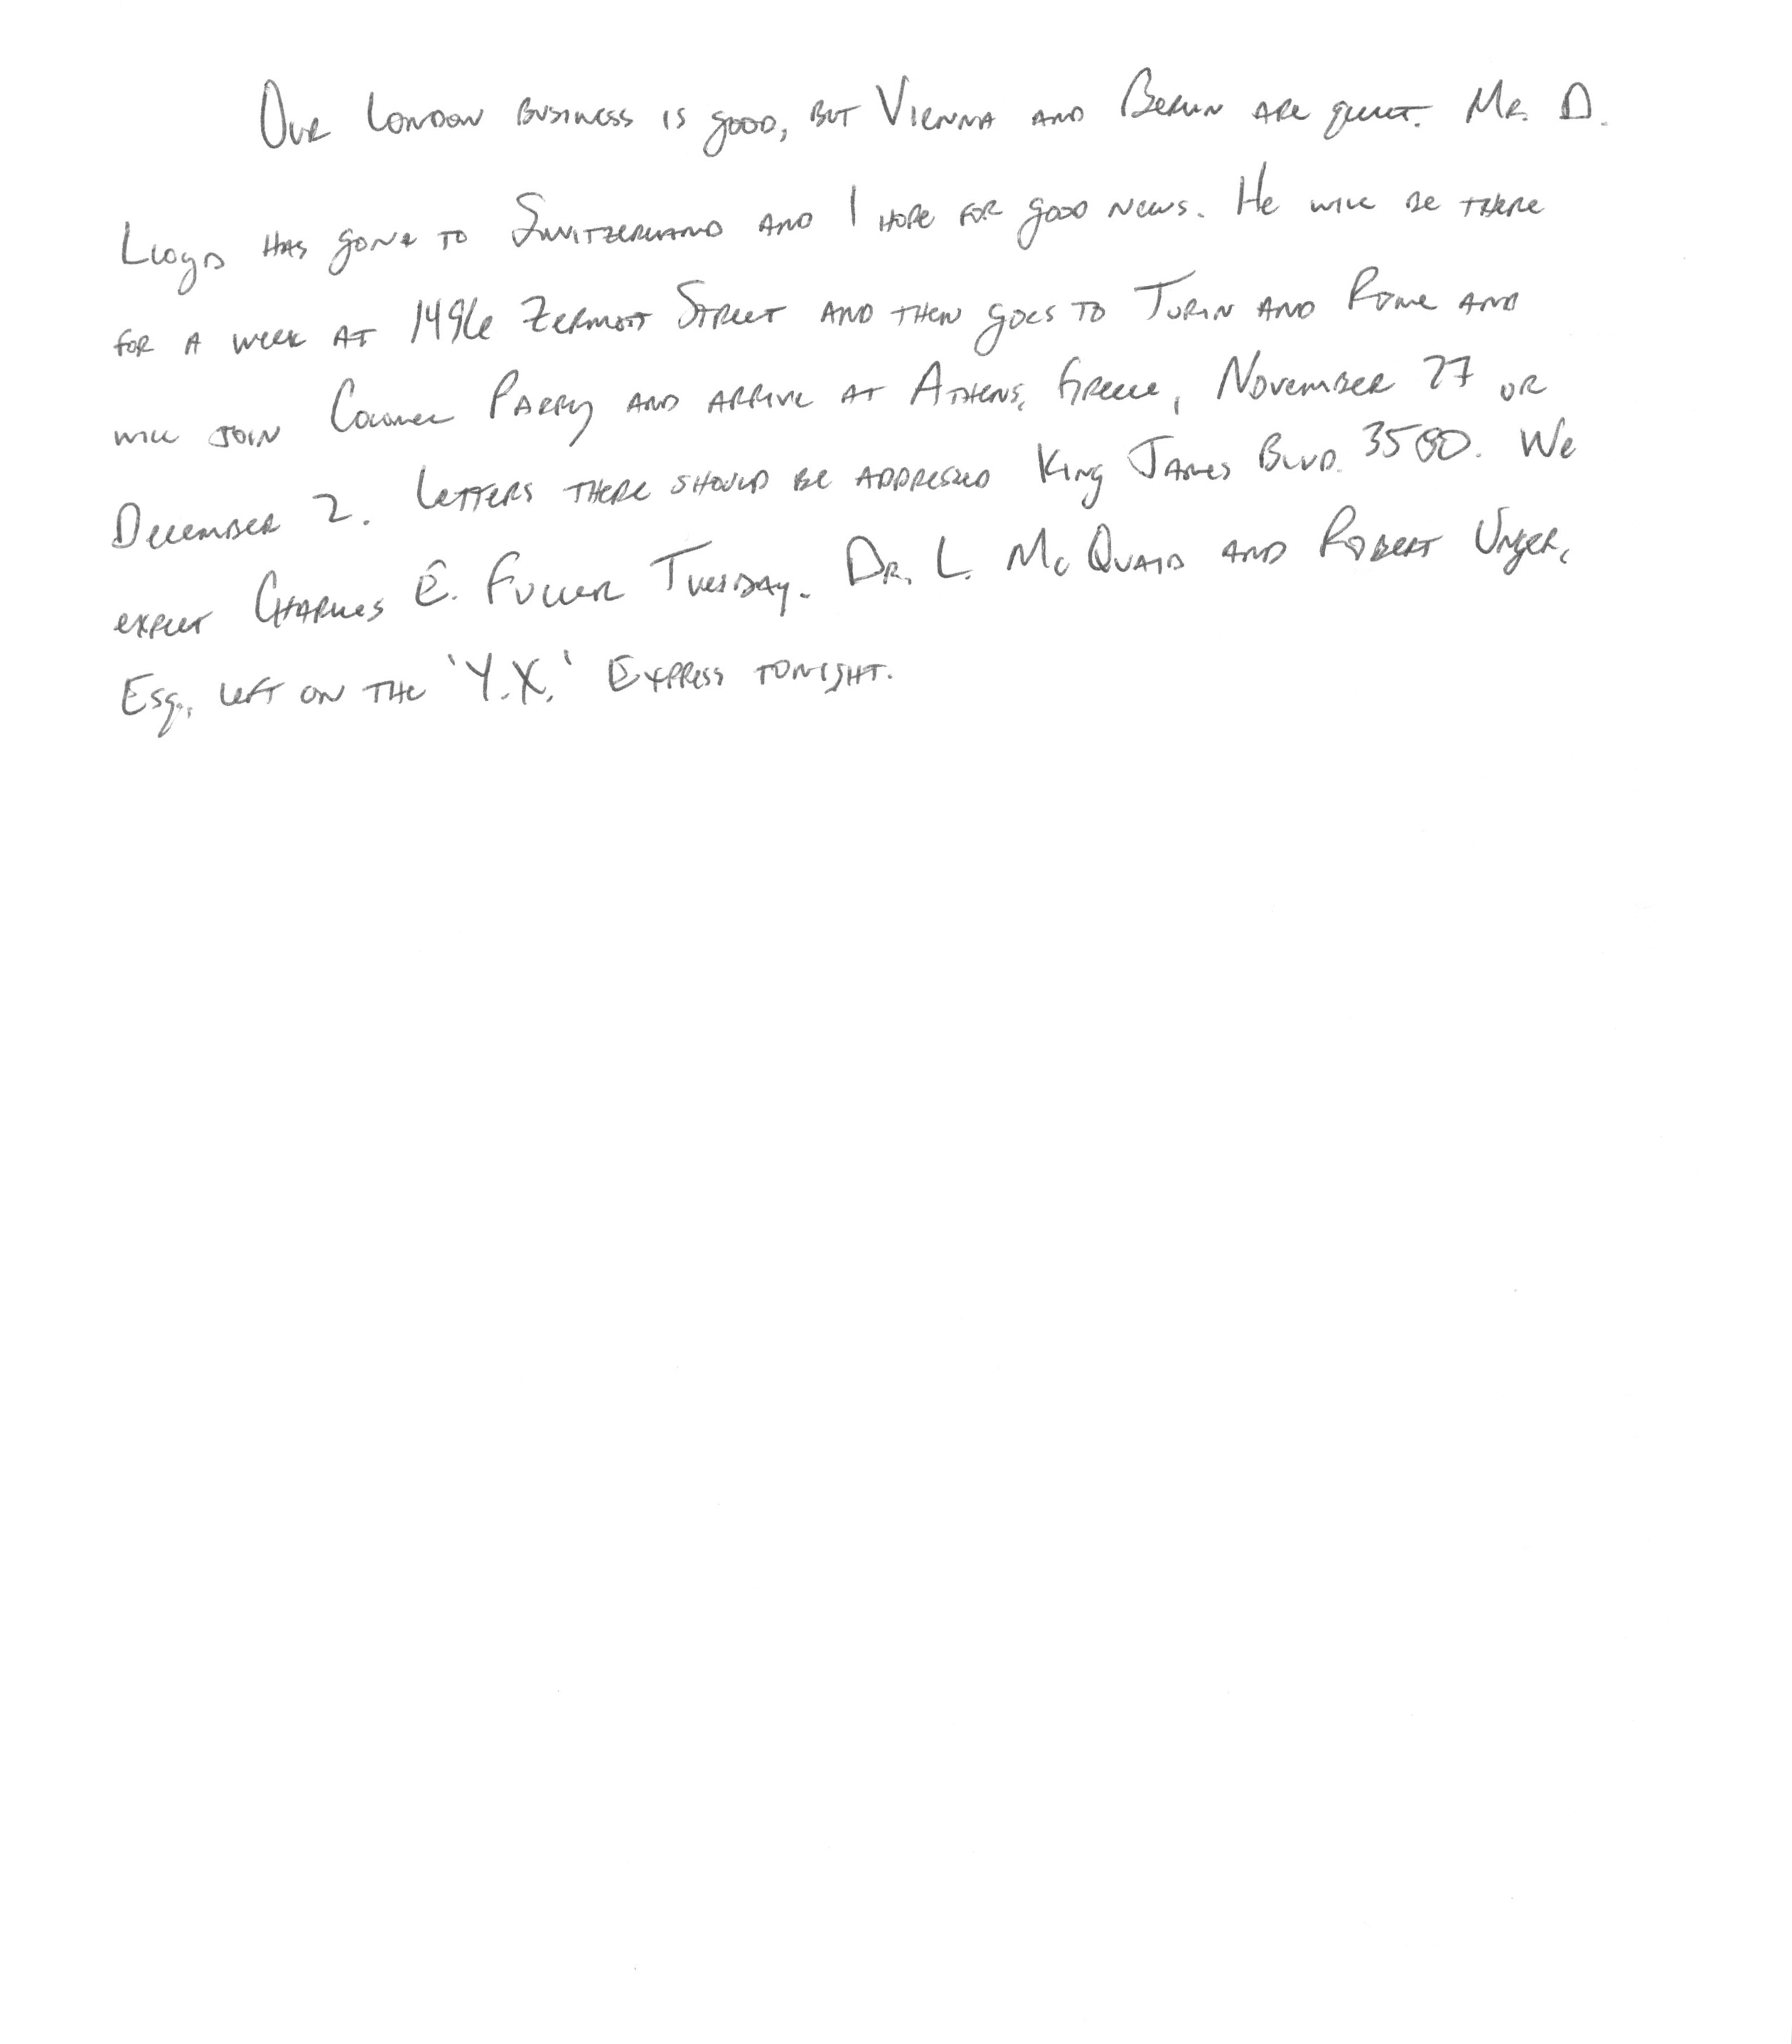 Our London business is good, but Vienna and Berlin are quiet. Mr. D.
Lloyd has gone to Switzerland and I hope for good news. He will be there
for a week at 1496 Zermott Street and then goes to Turin and Rome and
will join Colonel Parry and arrive at Athens, Greece, November 27 or
December 2. Letters there should be addressed King James Blvd. 3580. We
expect Charles E. Fuller Tuesday. Dr. L. McQuaid and Robert Unger,
Esq., left on the 'Y.X.' Express tonight.